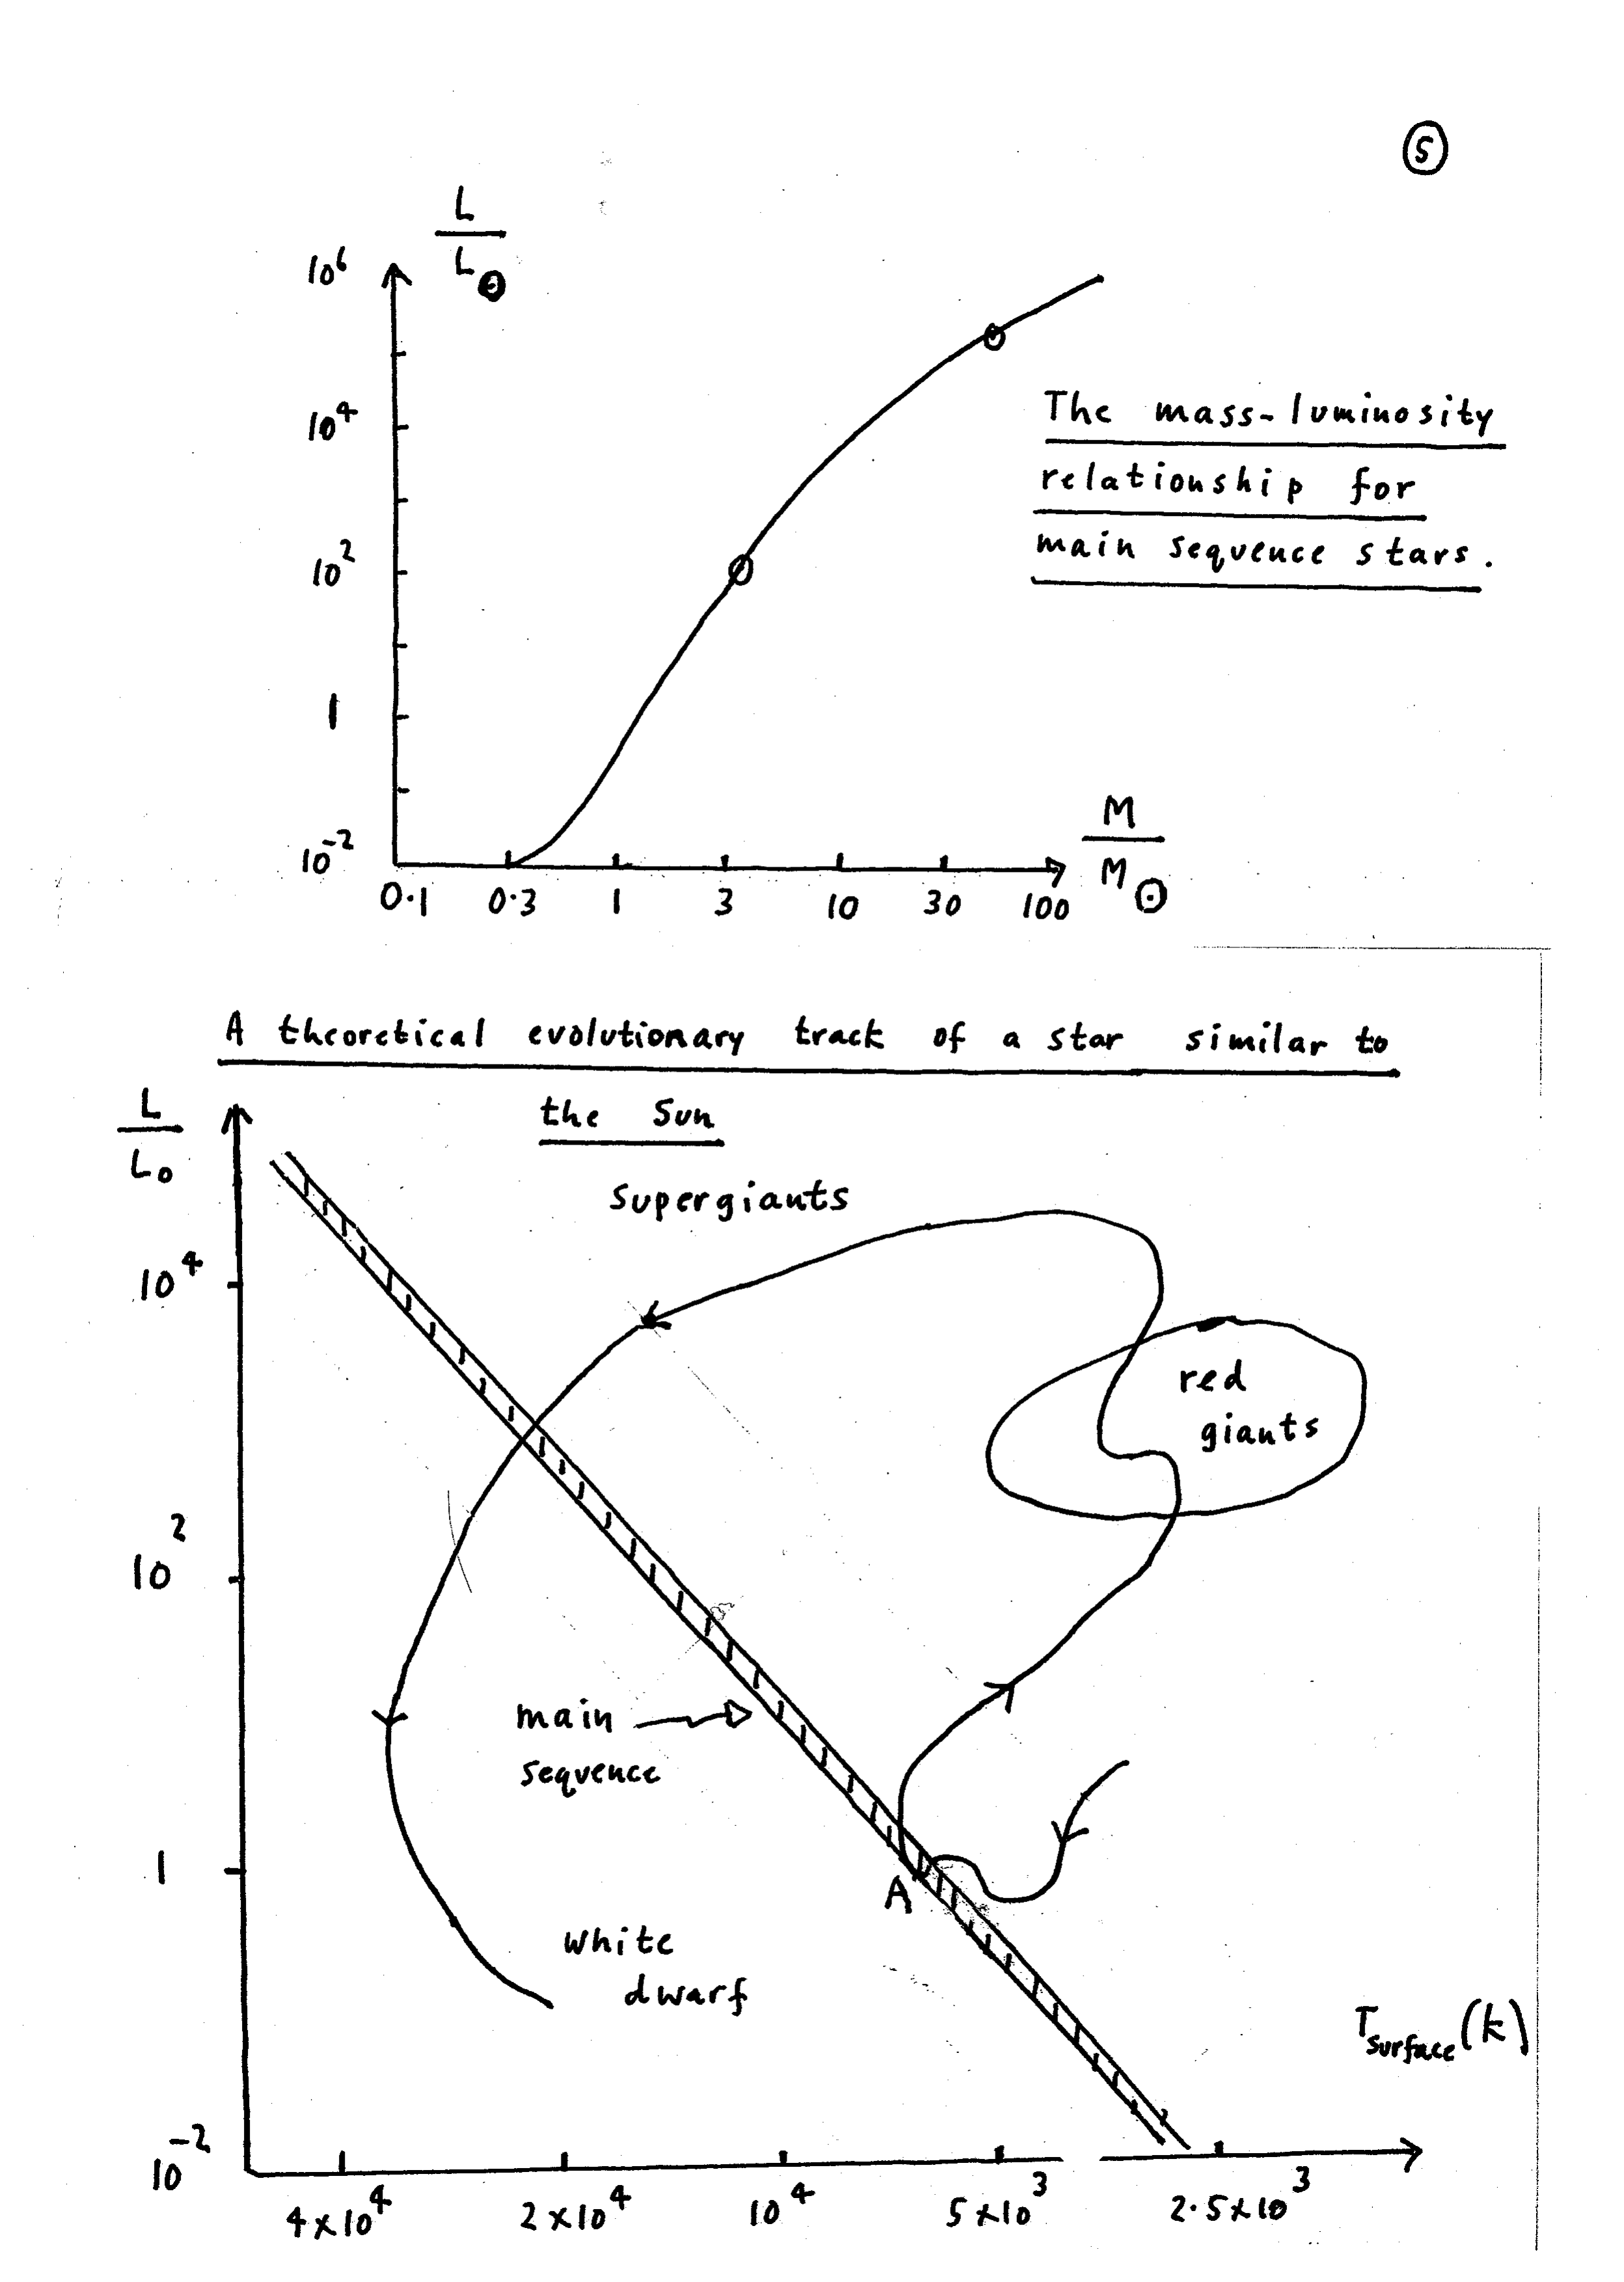 5
L
L⊙
10⁶
10⁴
10²
1
10⁻²
0.1 0.3 1 3 10 30 100
M
M⊙
The mass-luminosity
relationship for
main sequence stars.
A theoretical evolutionary track of a star similar to
the Sun
L
L₀
supergiants
10⁴
red
giants
10²
main
sequence
1
A
white
dwarf
Tsurface(k)
10⁻²
4×10⁴ 2×10⁴ 10⁴ 5×10³ 2.5×10³